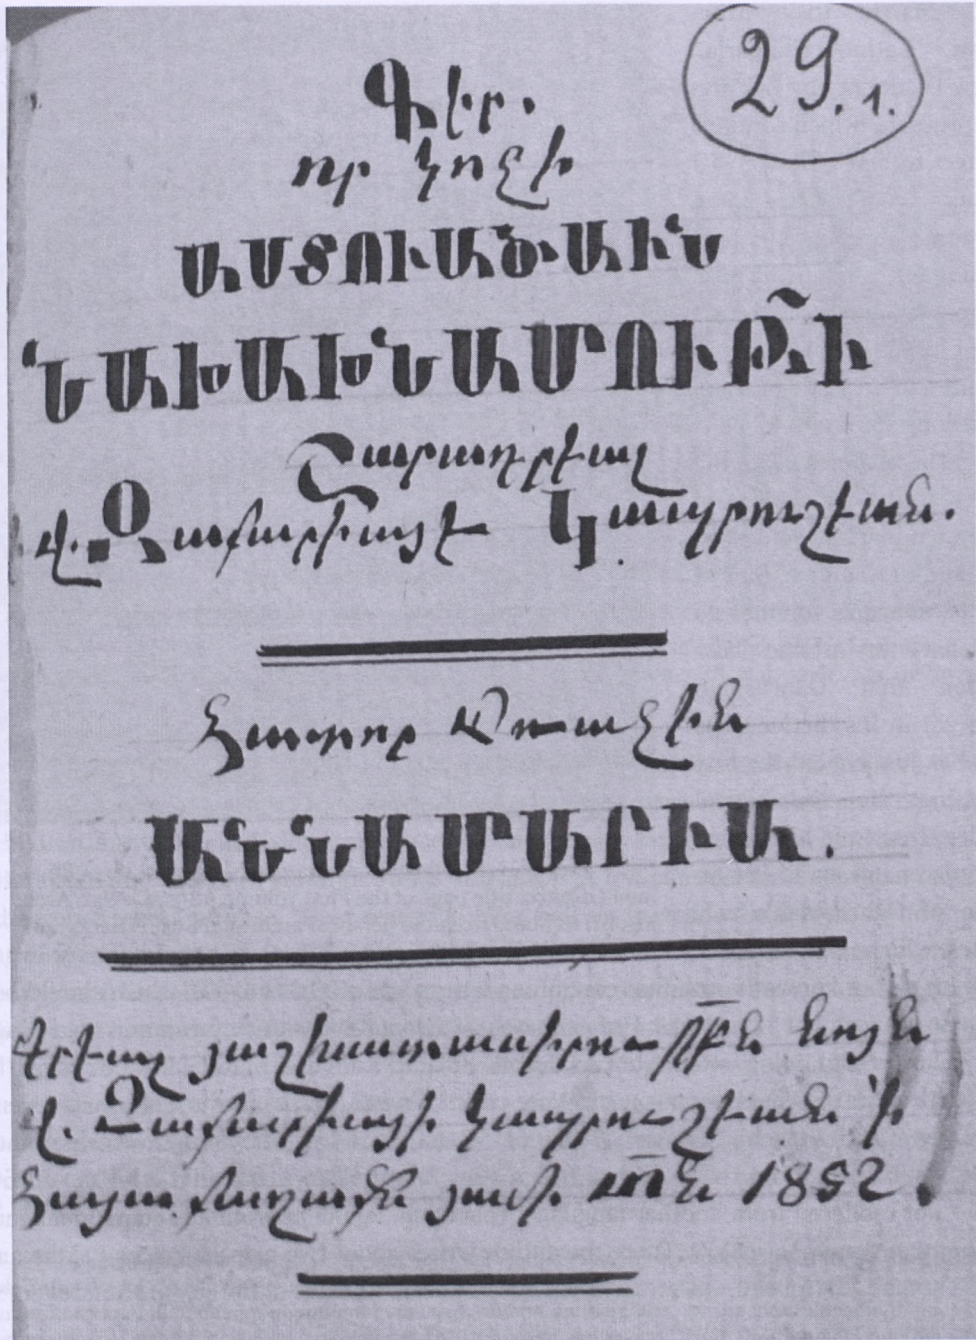 29.1.
Գիր.
որ կոչի
ԱՍՏՈՒԱԾԱԻՆ
ՆԱԽԱԽՆԱՄՈՒԹ՜Ի
Շարադրէալ
Վ. Զաքարիայէ Կապրուշէան.
Հատոր Առաջին
ԱՆՆԱՄԱՐԻԱ.
Գրէալ յաշխատասիրութբ՜ն նոյն
Վ. Զաքարիայի Կապրուշէան ՛ի
Հայաքաղաքն յամի տ՜ն 1852.